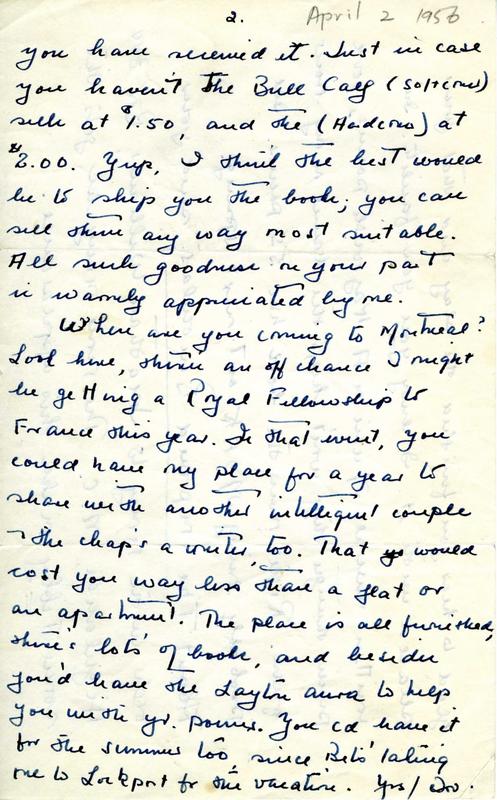 2. April 2 1956
you have received it. Just in case
you haven't The Bull Calf (Softcover)
sells at $1.50, and the (Hardcover) at
$2.00. Yup, I think the best would
be to ship you the books; you can
sell them any way most suitable.
All such goodness on your part
is warmly appreciated by me.
When are you coming to Montreal?
Look here, there's an off chance I might
be getting a Royal Fellowship to
France this year. In that event, you
could have my place for a year to
share with another intelligent couple
- the chap's a writer, too. That would
cost you way less than a flat or
an apartment. The place is all furnished,
there's lots of books, and besides
you'd have the Layton aura to help
you with yr. poems. You cd have it
for the summer too, since Bets' taking
me to Lockport for the vacation. Yrs/ Irv.